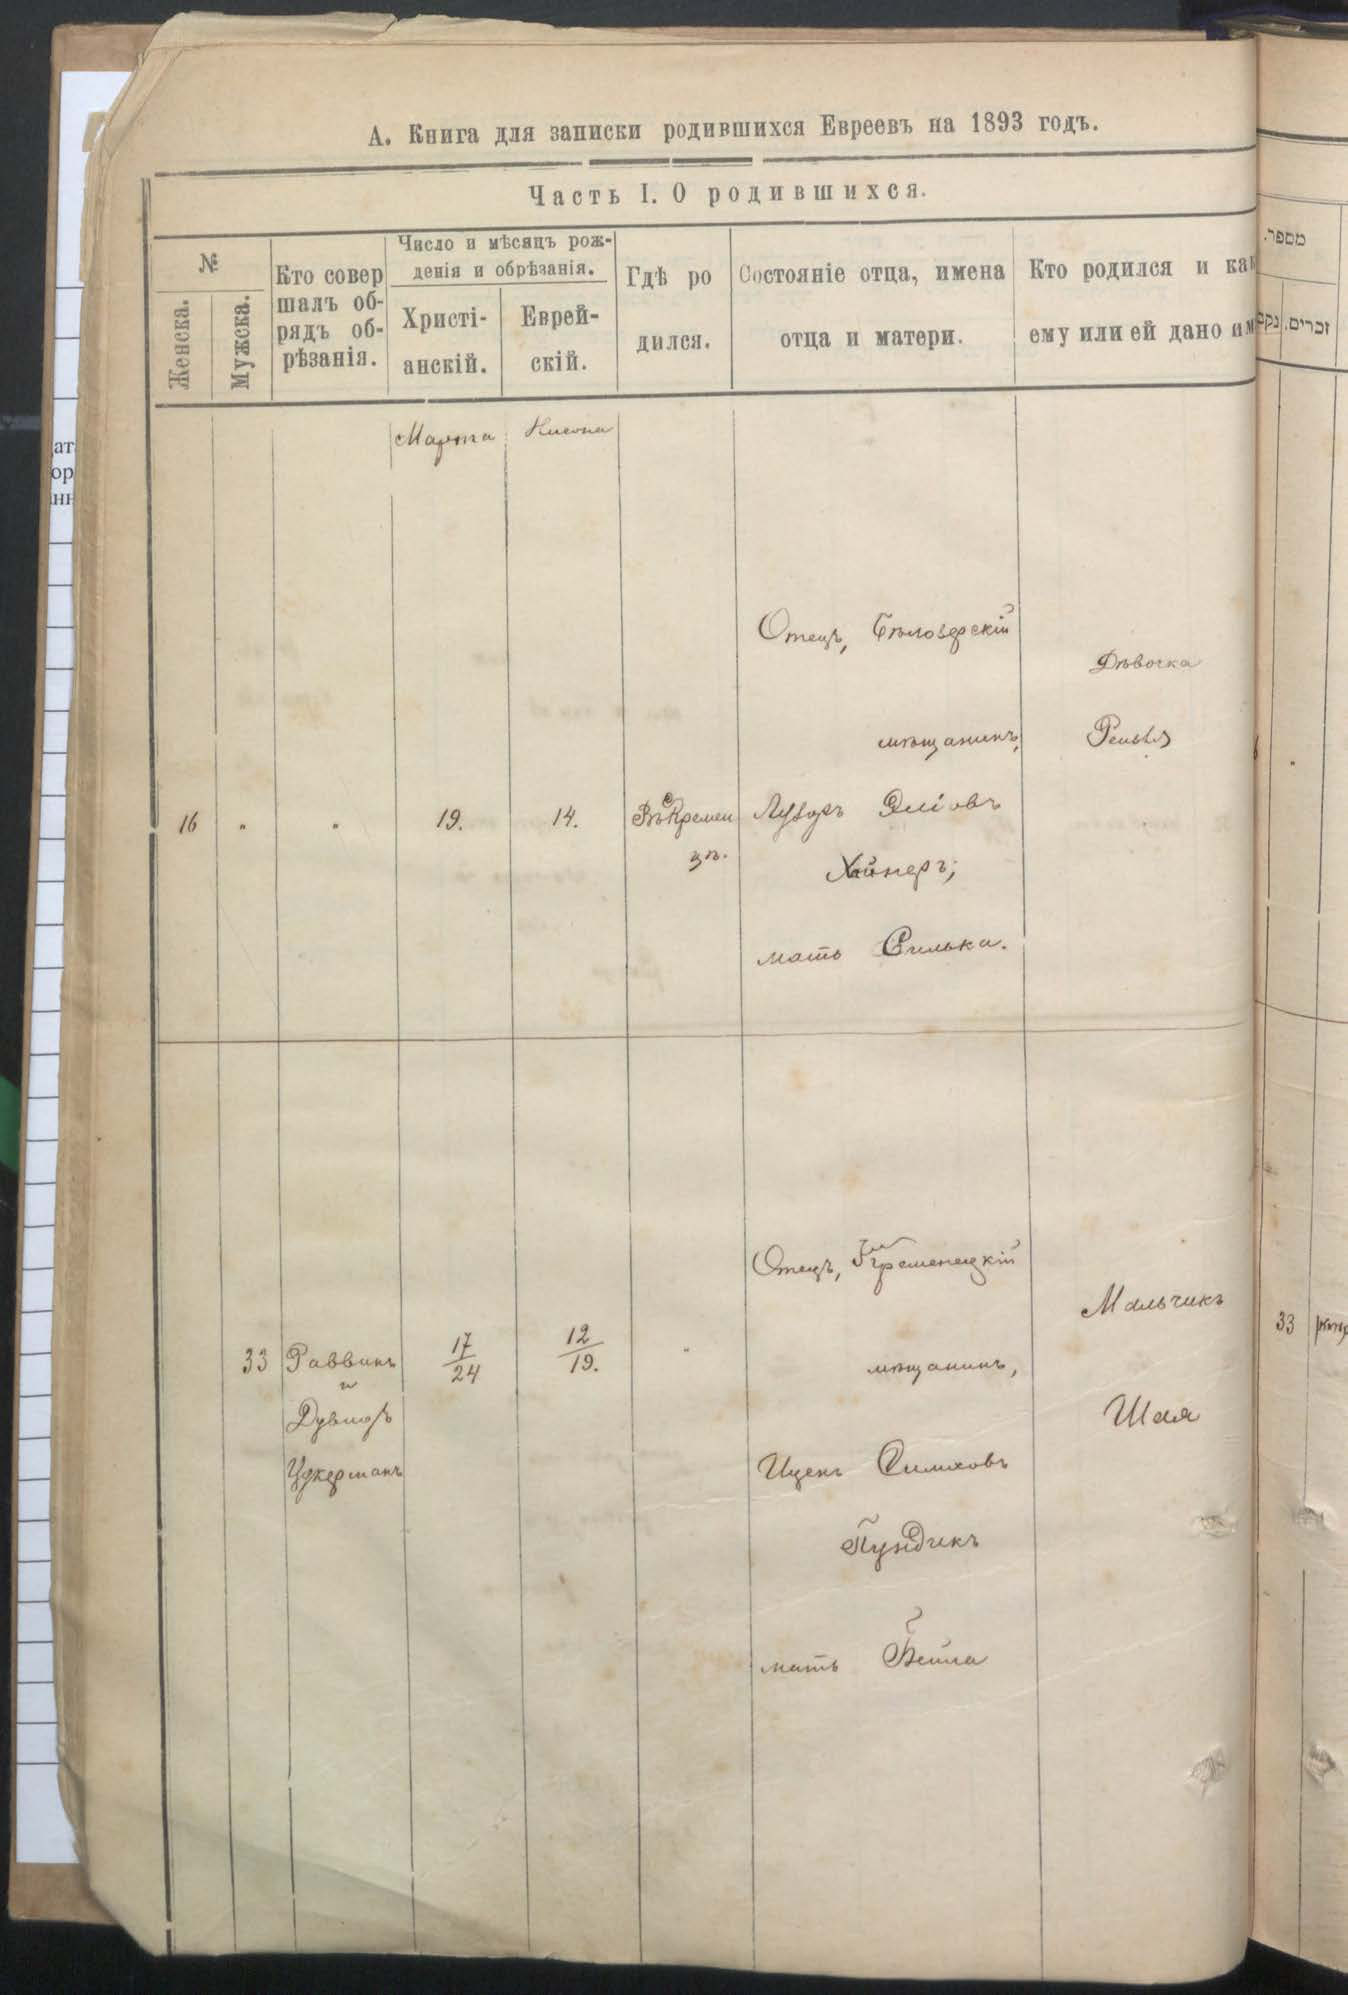 А. Книга для записки родившихся Евреевъ на 1893 годъ.
Часть I. О родившихся.
№
Женска.
Мужска.
Кто совер
шалъ об-
рядъ об-
рѣзанія.
Число и мѣсяцъ рож-
денія и обрѣзанія.
Христі-
анскій.
Еврей-
скій.
Гдѣ ро
дился.
Состояніе отца, имена
отца и матери.
Кто родился и как
ему или ей дано им
Марта
Нисона
16
"
"
19.
14.
Въ Кремен
цѣ.
Отецъ, Бѣлозерскій
мѣщанинъ,
Лузоръ Эліовъ
Хайнеръ;
мать Силька.
Дѣвочка
33
Раввинъ
и
Дувидъ
Цукерманъ
17
24
12
19.
"
Отецъ, Кременецкій
мѣщанинъ,
Ицекъ Симховъ
Пундикъ
мать Бейла
Мальчикъ
Шая
מספר.
זכרים.
נקב
"
33